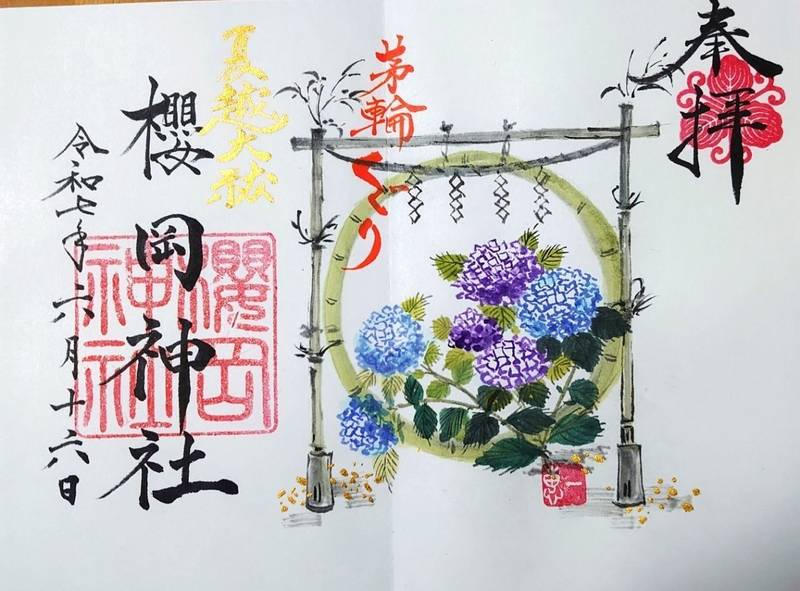 奉拝
茅輪くぐり
夏越大祓
櫻岡神社
櫻岡神社
令和七年六月十六日